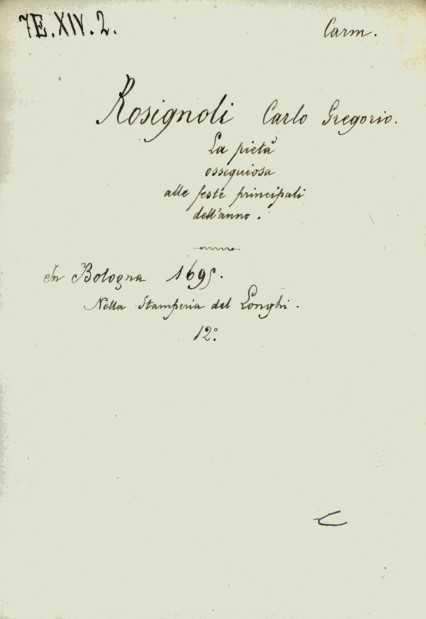 7E.XIV.2.
Carm.
Rosignoli Carlo Gregorio.
La pietà
ossequiosa
alle feste principali
dell'anno.
In Bologna 1695.
Nella Stamperia del Longhi.
12°.